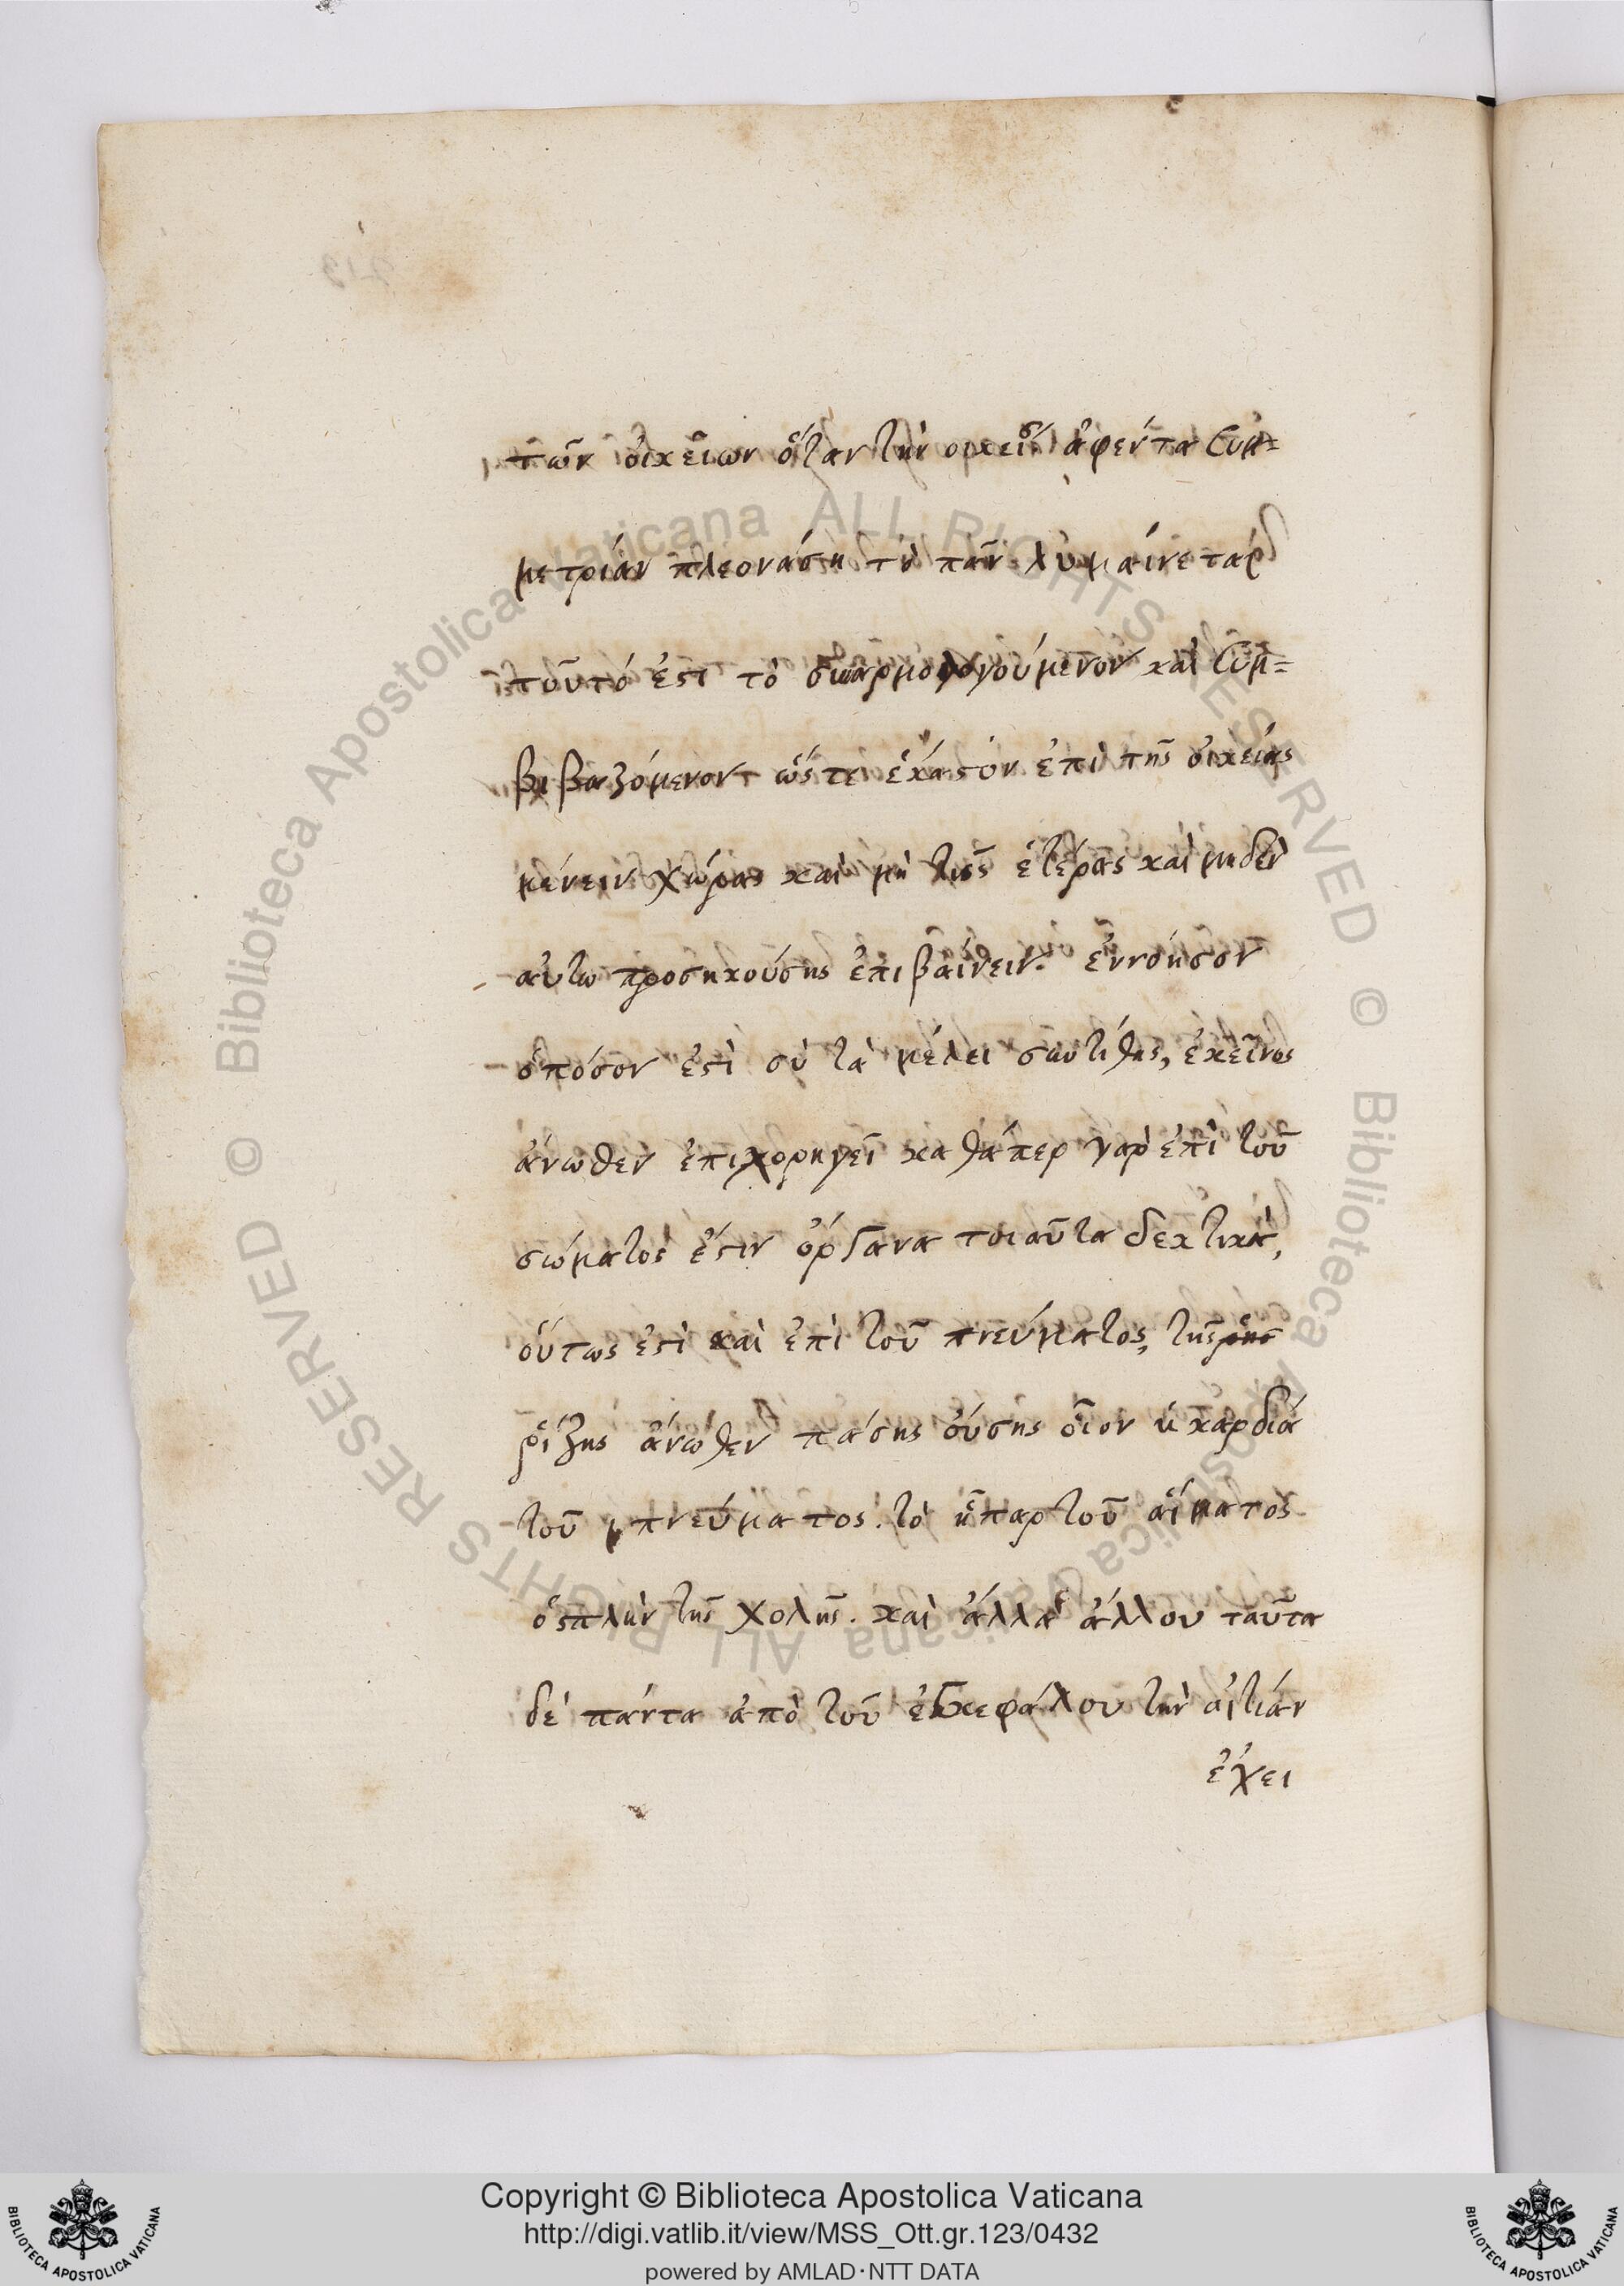 τῶν οἰκείων ὅταν τὴν οἰκείαν ἀφέντα συμ=
μετρίαν πλεονάση τὸ πᾶν λυμαίνεται
τοῦτό ἐστι τὸ συναρμολογούμενον καὶ συμ=
βιβαζόμενον ὥστε ἕκαστον ἐπὶ τῆς οἰκείας
μένειν χώρας καὶ μὴ τῆς ἑτέρας καὶ μηδὲν
αὐτω προσηκούσης ἐπιβαίνειν. ἐννόησον
ὁπόσον ἐστὶ σὺ τὰ μέλει συντιθης, ἐκεῖνος
ἄνωθεν ἐπιχορηγεῖ καθάπερ γαρ ἐπὶ τοῦ
σώματος ἐστιν ὄργανα τοιαῦτα δεκτικὰ,
οὕτως ἐστὶ καὶ ἐπὶ τοῦ πνεύματος, τῆς
ῥίζης ἄνωθεν πάσης οὔσης οἷον ἡ καρδιά
τοῦ πνεύματος. τὸ ἧπαρ τοῦ αἵματος
ὁ σπλὴν τῆς χολῆς. καὶ ἄλλα ἄλλου ταῦτα
δὲ πάντα ἀπὸ τοῦ ἐγκεφάλου τὴν αἰτίαν
ἔχει
Copyright © Biblioteca Apostolica Vaticana
http://digi.vatlib.it/view/MSS_Ott.gr.123/0432
powered by AMLAD·NTT DATA
BIBLIOTECA APOSTOLICA VATICANA
BIBLIOTECA APOSTOLICA VATICANA
© Biblioteca Apostolica Vaticana ALL RIGHTS RESERVED
© Biblioteca Apostolica Vaticana ALL RIGHTS RESERVED